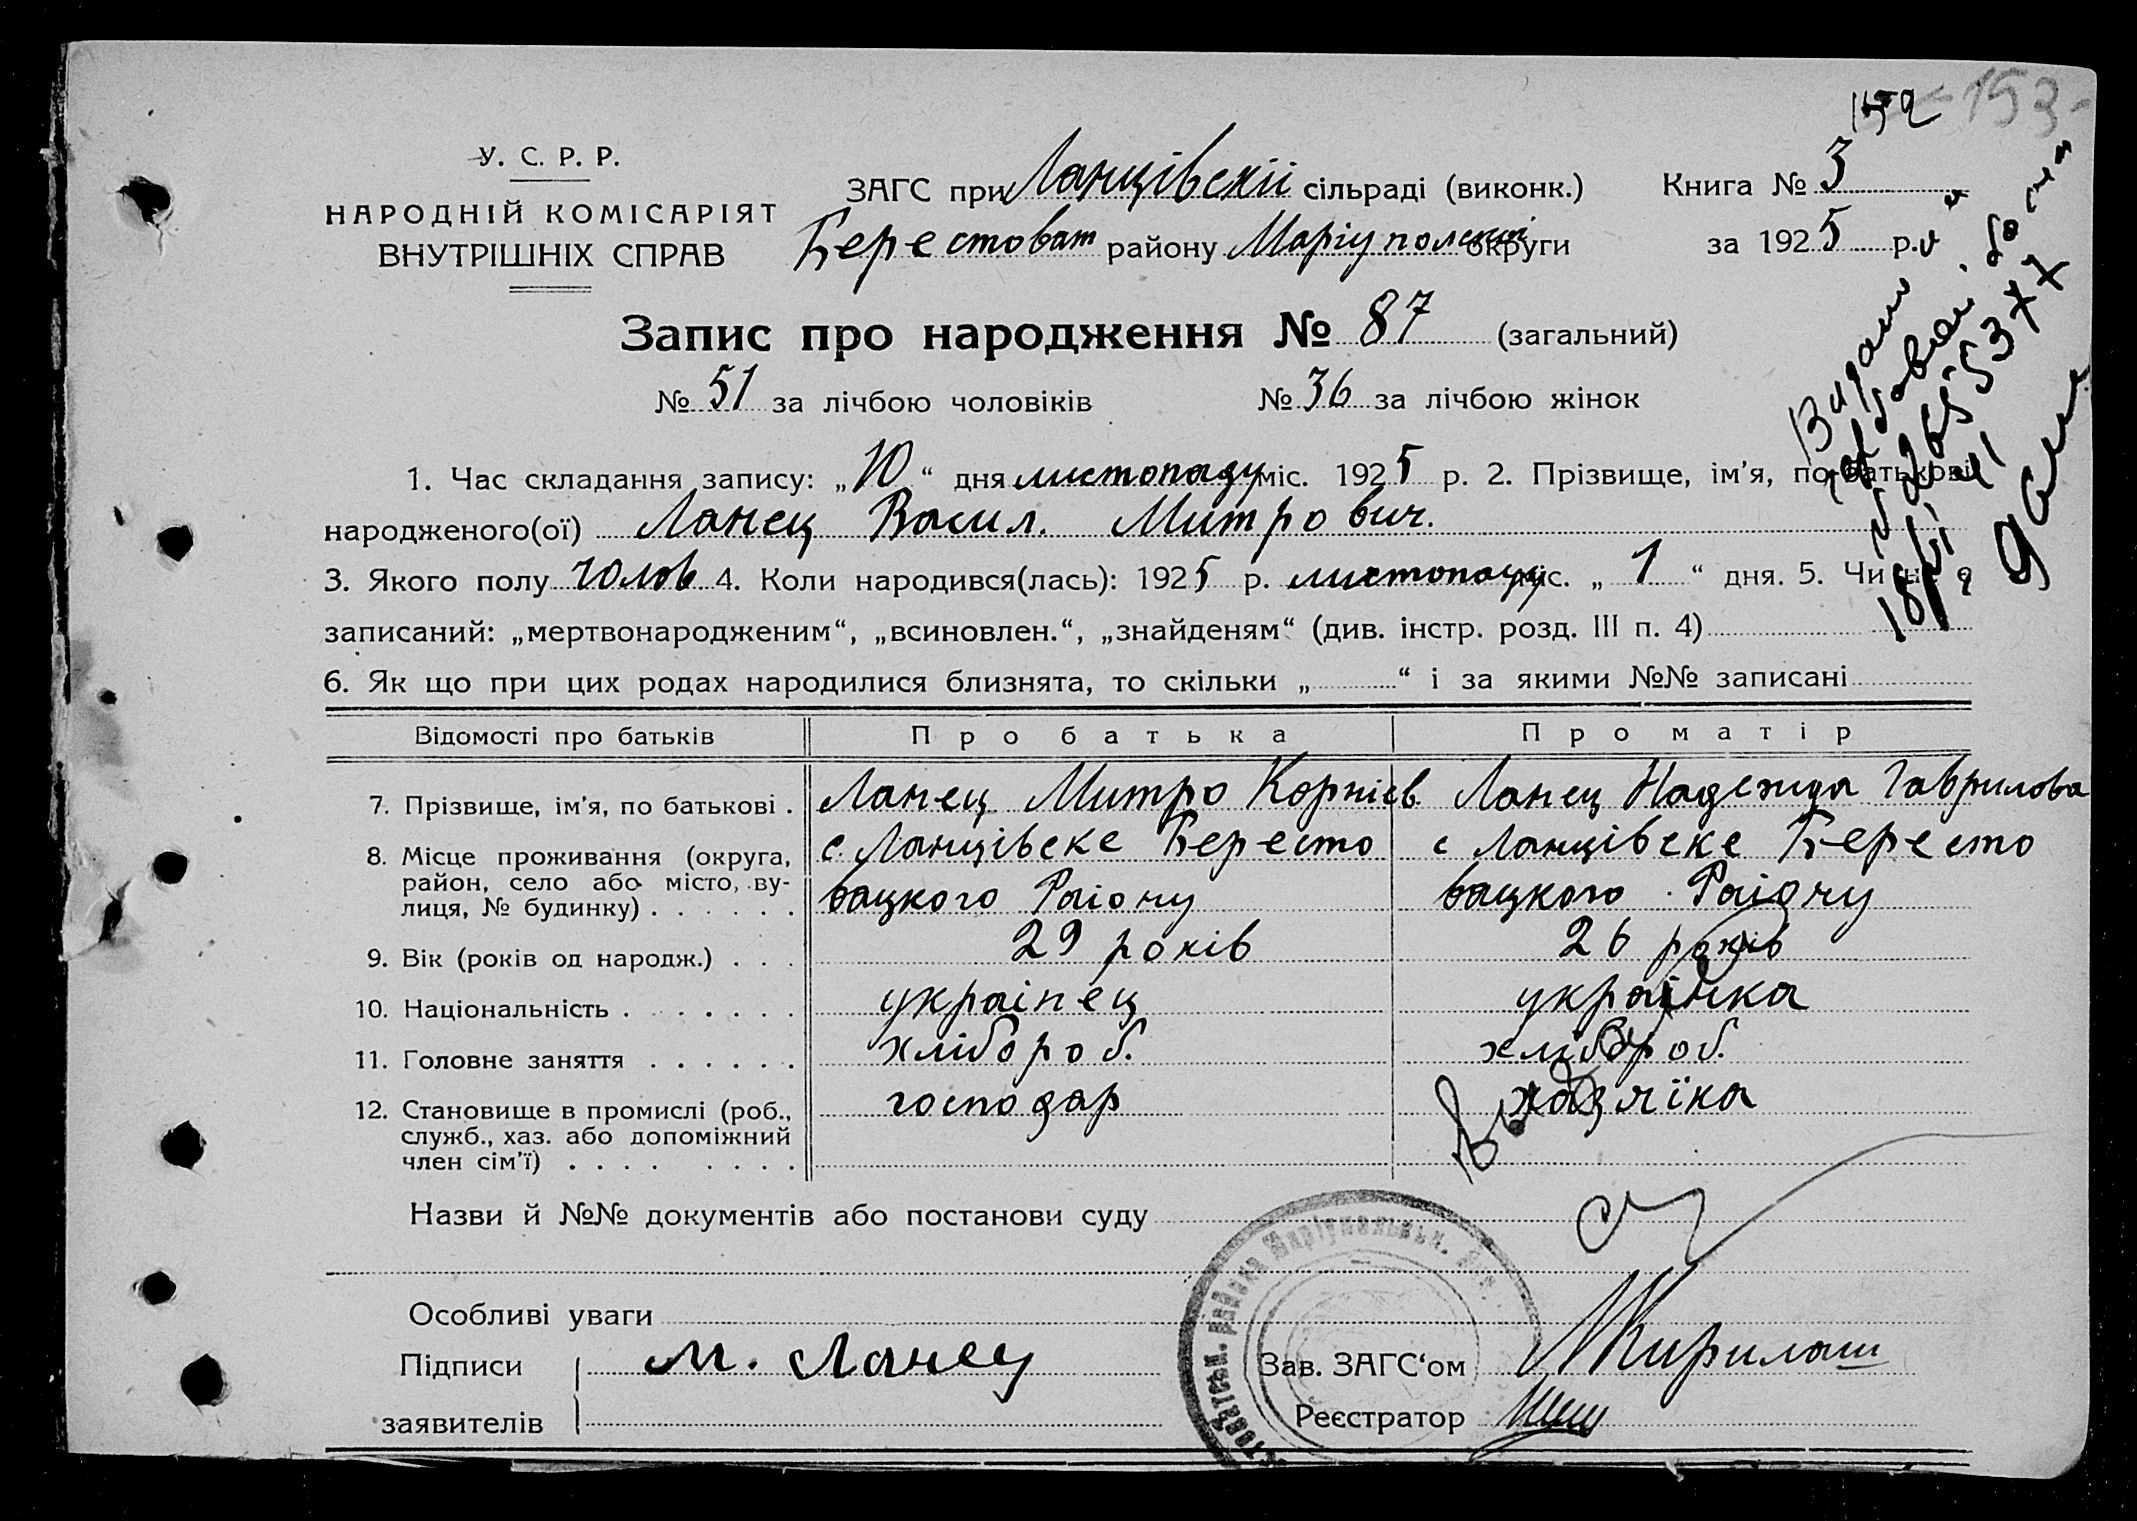 152 153
У. С. Р. Р.
НАРОДНІЙ КОМІСАРІЯТ
ВНУТРІШНІХ СПРАВ
ЗАГС при Ланцівскій сільраді (виконк.) Книга № 3
Берестоват району Маріуполской округи за 1925 р.
Запис про народження № 87 (загальний)
№ 51 за лічбою чоловіків № 36 за лічбою жінок
1. Час складання запису: „10“ дня листопаду міс. 1925 р. 2. Прізвище, ім'я, по-батькові
народженого(ої) Ланец Васил. Митрович.
3. Якого полу чолов 4. Коли народився(лась): 1925 р. листопаду міс. „1“ дня. 5. Чи не є
записаний: „мертвонародженим“, „всиновлен.“, „знайденям“ (див. інстр. розд. III п. 4)
6. Як що при цих родах народилися близнята, то скільки „ “ і за якими №№ записані
Відомості про батьків Про батька Про матір
7. Прізвище, ім'я, по батькові . Ланец Митро Корнієв. Ланец Надежда Гаврилова
8. Місце проживання (округа, район, село або місто, вулиця, № будинку) . . . . . .
с. Ланцівске Бересто
вацкого Раіону
с Ланцівске Бересто
вацкого Раіону
9. Вік (років од народж.) . . . 29 років 26 років
10. Національність . . . . . . . украінец украінка
11. Головне заняття . . . . . . хлібороб. хлібороб.
12. Становище в промислі (роб., служб., хаз. або допоміжний член сім'ї) . . . . . . . .
господар хазяїка
Назви й №№ документів або постанови суду
Особливі уваги
Підписи М. Ланец Зав. ЗАГС'ом
заявителів Реєстратор